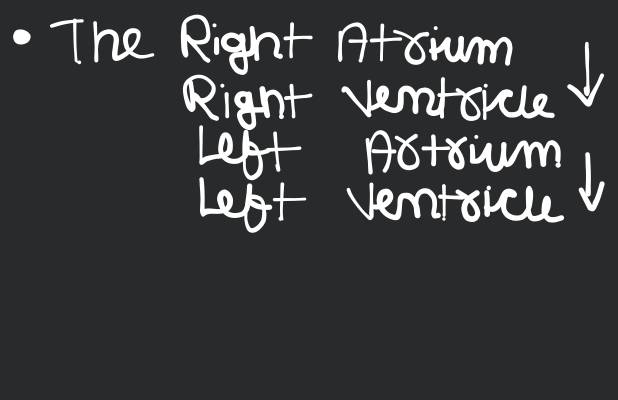 • The Right Atrium ↓
Right Ventricle
Left Artrium ↓
Left Ventricle